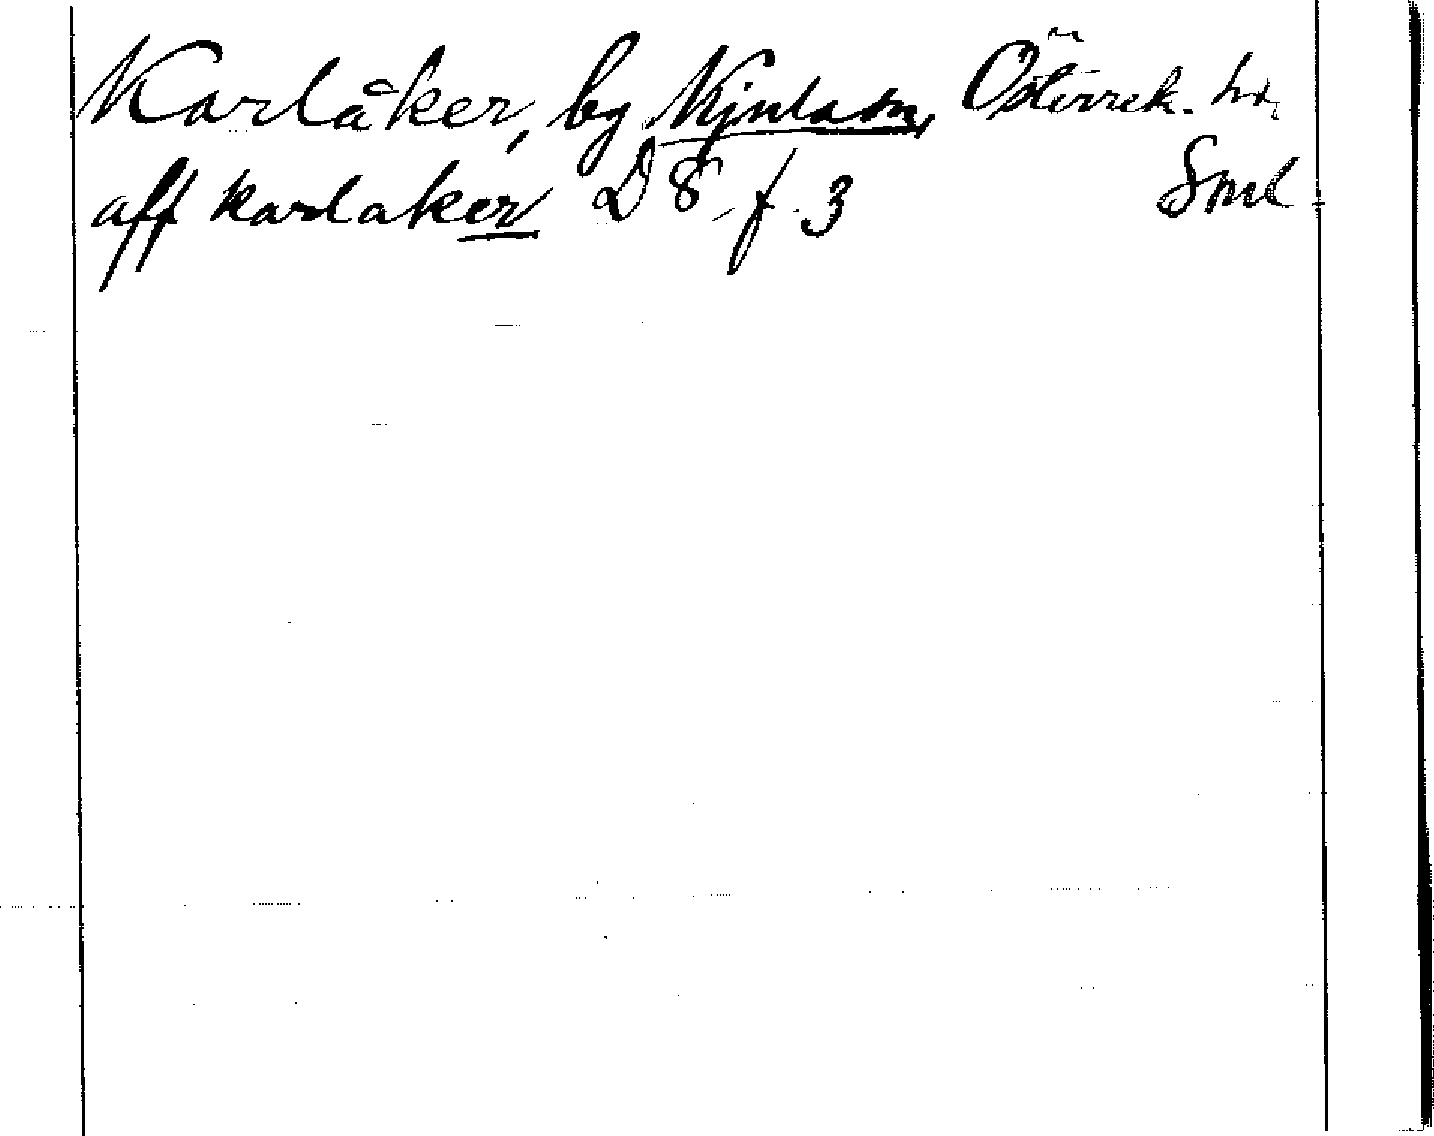 Karlåker, by Kjulaäs, Österrek. hd,
aff karlaker D 8 f. 3 Sml